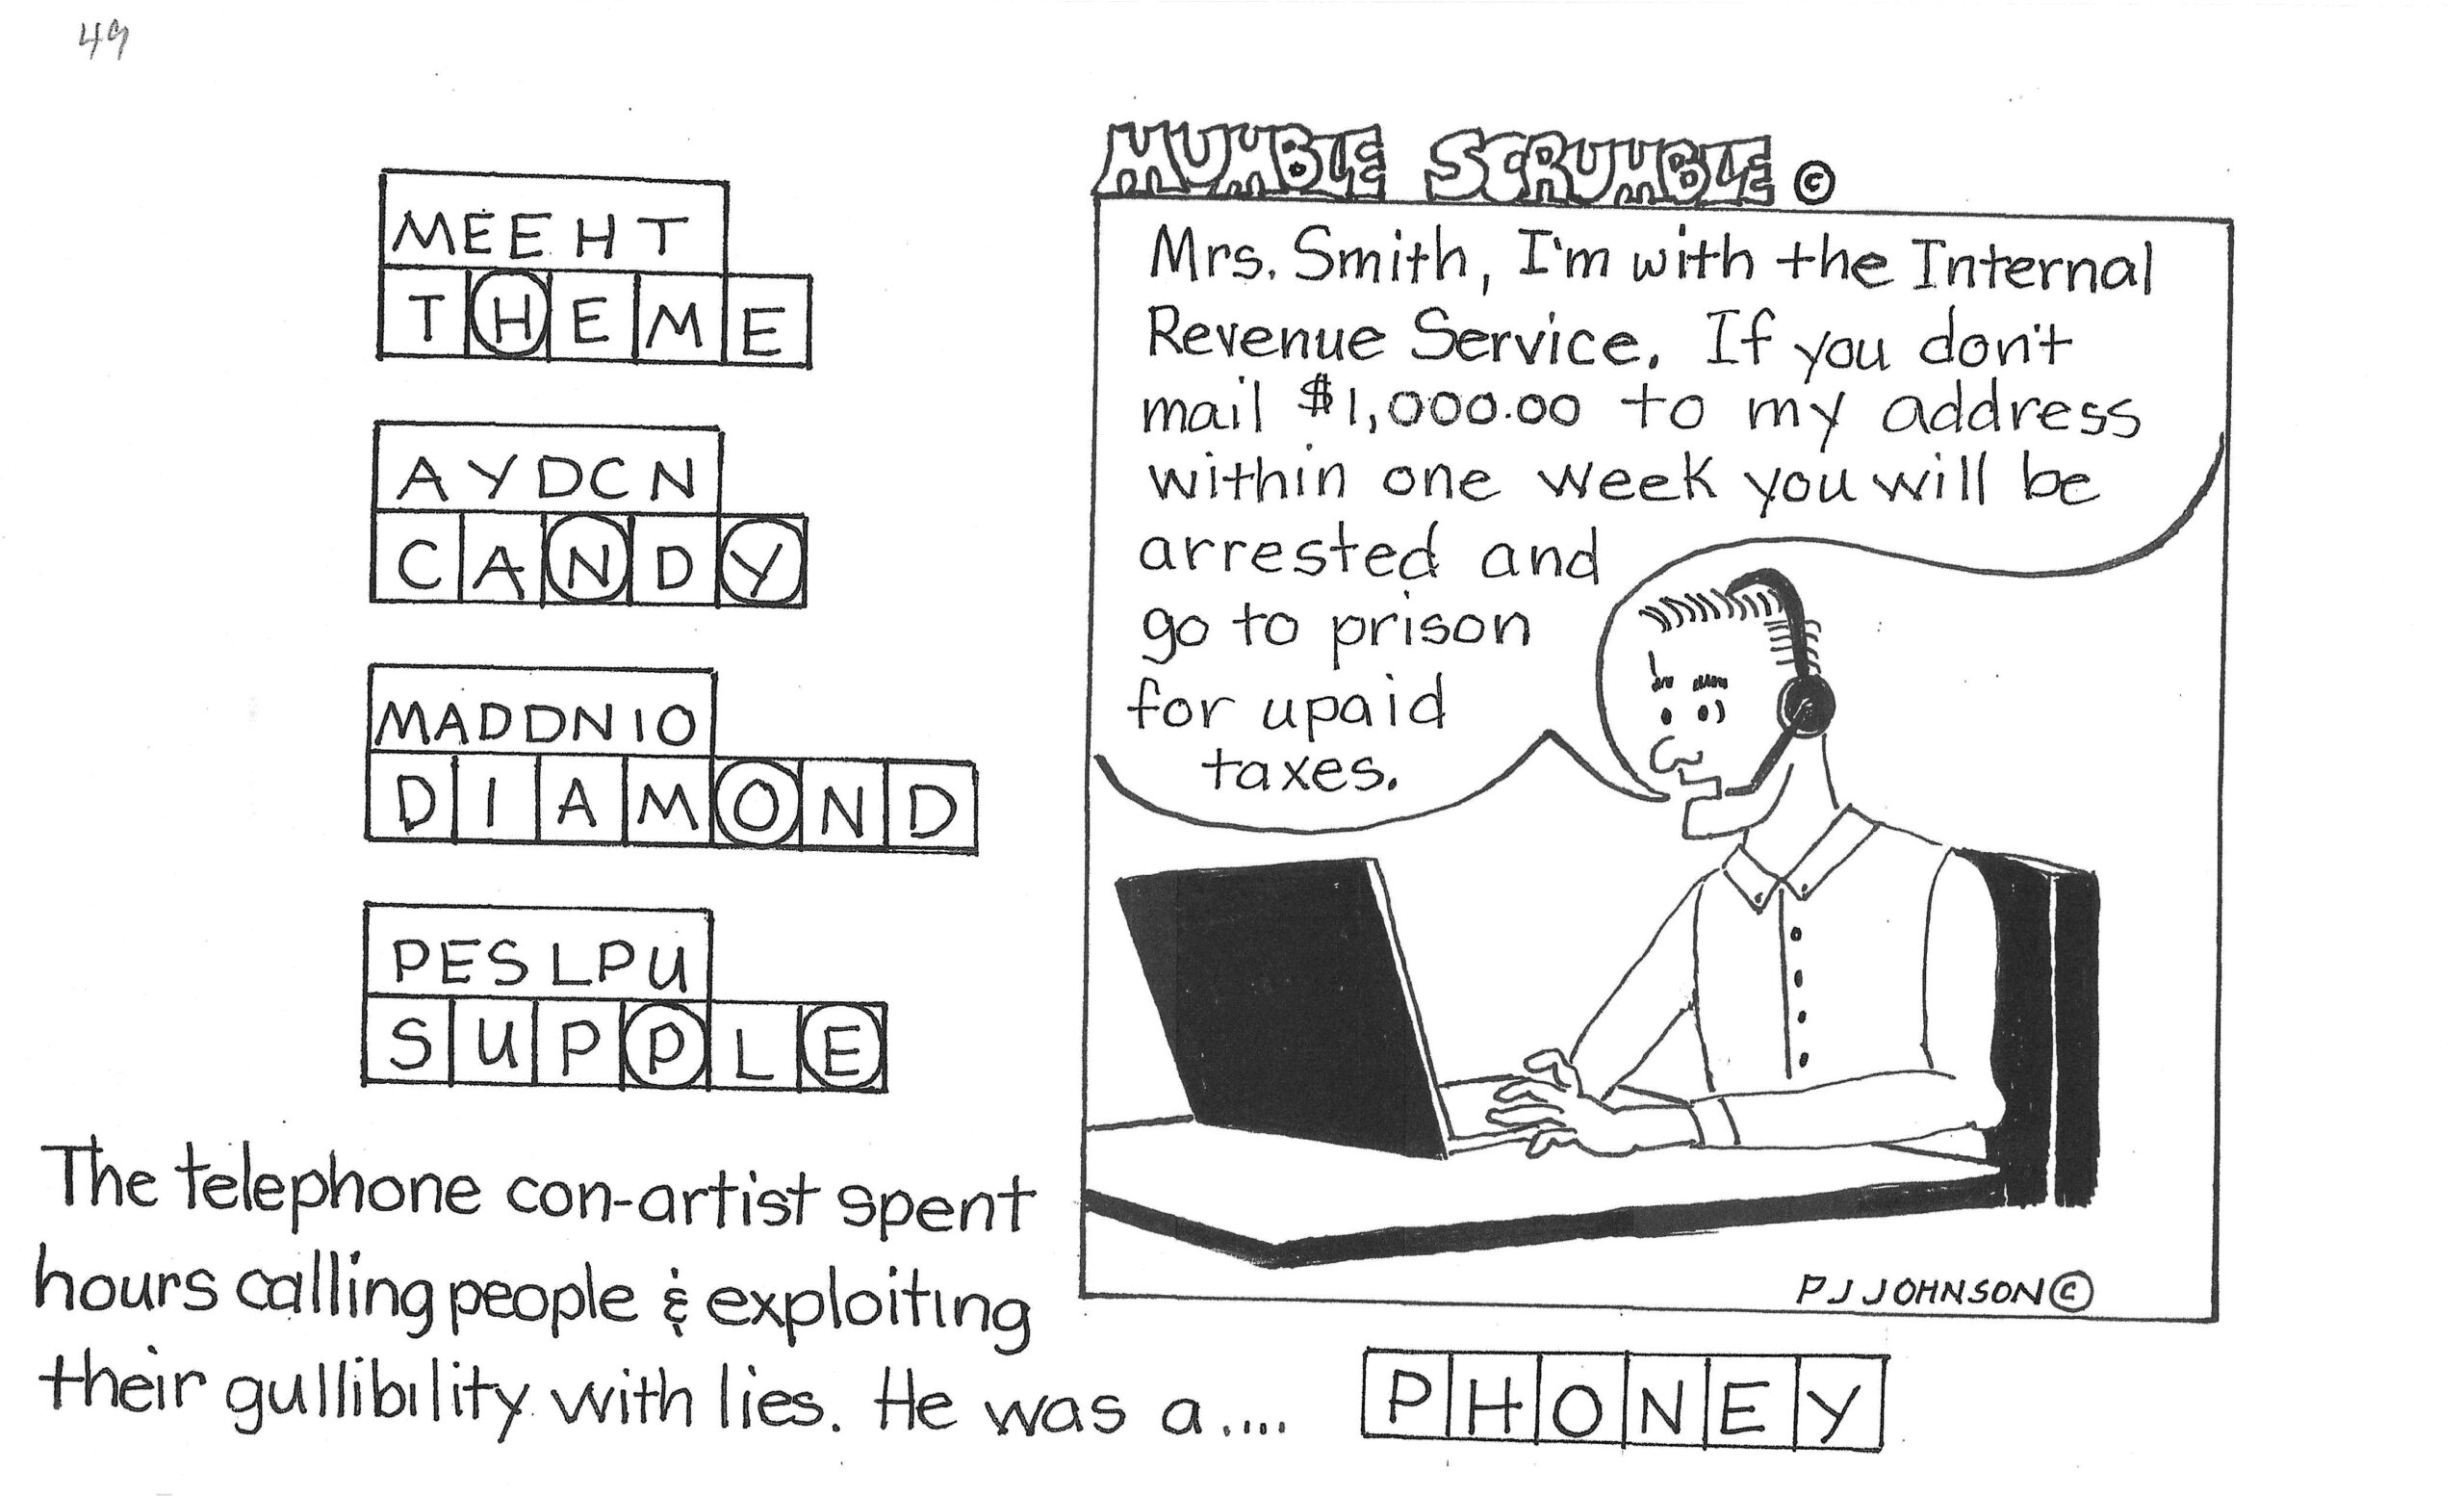 49
MEEHT
THEME
AYDCN
CANDY
MADDNIO
DIAMOND
PESLPU
SUPPLE
MUMBLE SCRUMBLE ©
Mrs. Smith, I'm with the Internal
Revenue Service. If you don't
mail $1,000.00 to my address
within one week you will be
arrested and
go to prison
for upaid
taxes.
PJ JOHNSON ©
The telephone con-artist spent
hours calling people & exploiting
their gullibility with lies. He was a....
PHONEY